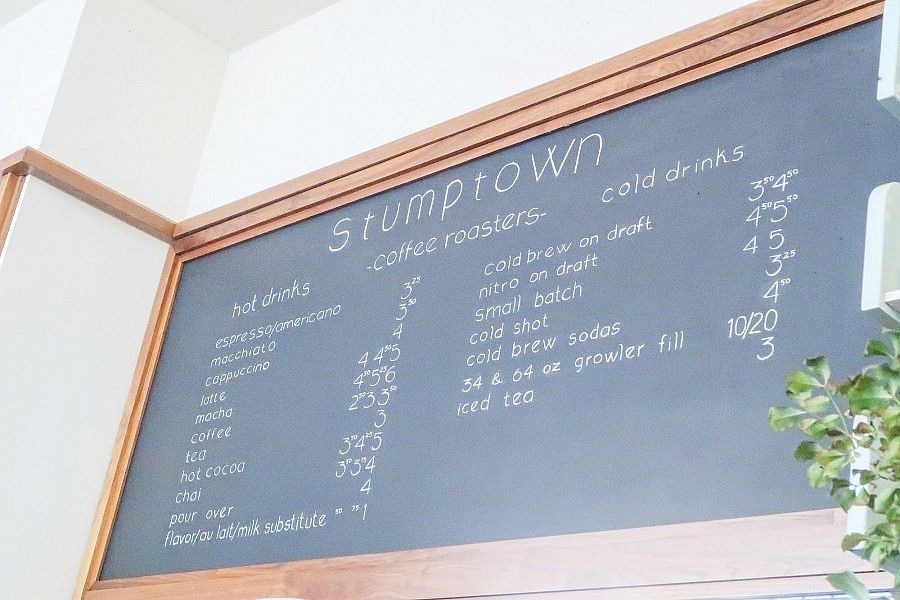 stumptown
-coffee roasters-
hot drinks
espresso/americano 3²⁵
macchiato 3⁵⁰
cappuccino 4
latte 4 4⁵⁰ 5
mocha 4⁵⁰ 5²⁵ 6
coffee 2⁵⁰ 3 3⁵⁰
tea 3
hot cocoa 3⁵⁰ 4²⁵ 5
chai 3⁵⁰ 3⁷⁵ 4
pour over 4
flavor/au lait/milk substitute ⁵⁰ ⁷⁵ 1
cold drinks
cold brew on draft 3⁵⁰ 4⁵⁰
nitro on draft 4⁵⁰ 5⁵⁰
small batch 4 5
cold shot 3²⁵
cold brew sodas 4⁵⁰
34 & 64 oz growler fill 10/20
iced tea 3